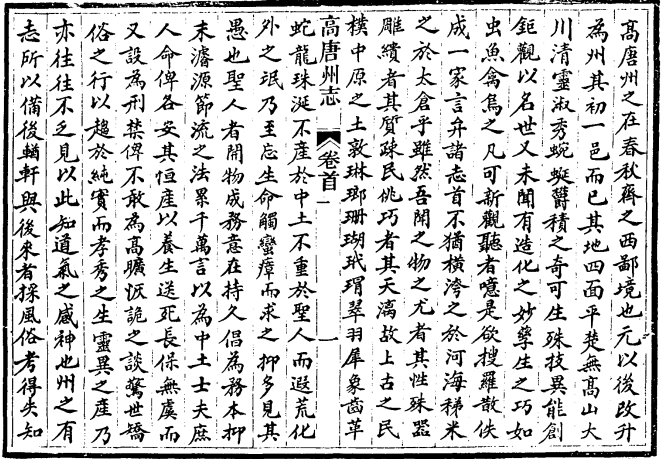 高唐州之在春秋齊之西鄙境也元以後改升
為州其初一邑而已其地四面平楚無高山大
川清靈淑秀蜿蜒欝積之奇可生殊技異能創
鉅觀以名世又未聞有造化之妙孳生之巧如
虫魚禽鳥之凡可新觀聽者噫是欲搜羅散佚
成一家言弁諸志首不猶橫洿之於河海稊米
之於太倉乎雖然吾聞之物之尤者其性殊器
雕繢者其質疎民佻巧者其天漓故上古之民
樸中原之土敦琳瑯珊瑚玳瑁翠羽犀象齒革
高唐州志 卷首 一
蛇龍珠涎不產於中土不重於聖人而遐荒化
外之氓乃至忘生命觸蠻瘴而求之抑多見其
愚也聖人者開物成務意在持久倡為務本抑
末濬源節流之法累千萬言以為中土士夫庶
人命俾各安其恒產以養生送死長保無虞而
又設為刑禁俾不敢為高曠恢詭之談驚世矯
俗之行以趨於純實而孝秀之生靈異之產乃
亦往往不乏見以此知道氣之感神也州之有
志所以備後輶軒與後來者採風俗考得失知